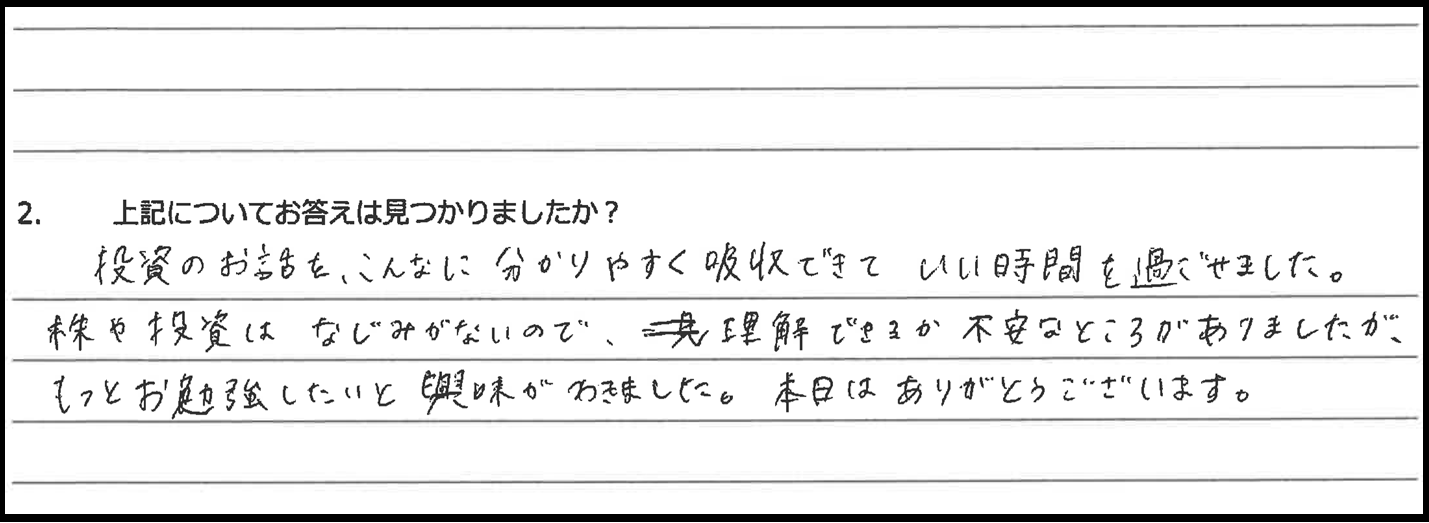 2. 上記についてお答えは見つかりましたか？
投資のお話を、こんなに分かりやすく吸収できて いい時間を過ごせました。
株や投資は なじみがないので、理解できるか不安なところがありましたが、
もっとお勉強したいと興味がわきました。本日はありがとうございます。